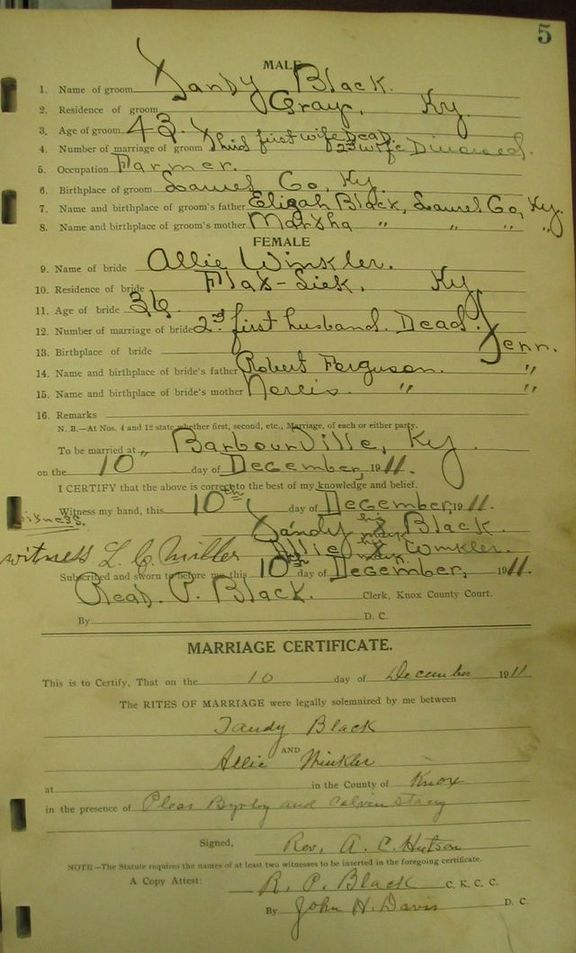 5
MALE
1. Name of groom Tandy Black.
2. Residence of groom Gray, Ky.
3. Age of groom 43.
4. Number of marriage of groom Third first wife Dead. 2nd wife Divorced.
5. Occupation Farmer.
6. Birthplace of groom Laurel Co, Ky.
7. Name and birthplace of groom's father Eligah Black, Laurel Co, Ky.
8. Name and birthplace of groom's mother Marsha " " " "
FEMALE
9. Name of bride Allie Winkler.
10. Residence of bride Flax-Lick, Ky.
11. Age of bride 36.
12. Number of marriage of bride 2nd. first husband. Dead.
13. Birthplace of bride Tenn.
14. Name and birthplace of bride's father Robert Ferguson. "
15. Name and birthplace of bride's mother " "
16. Remarks
N. B.—At Nos. 4 and 12 state whether first, second, etc., Marriage, of each or either party.
To be married at " Barbourville, Ky.
on the 10 day of December, 1911.
I CERTIFY that the above is correct to the best of my knowledge and belief.
Witness my hand, this 10th day of December, 1911.
witness. Tandy his x mark Black.
witness L. C. Miller Allie her x mark Winkler.
Subscribed and sworn to before me this 10th day of December, 1911.
Read. P. Black. Clerk, Knox County Court.
By D. C.
MARRIAGE CERTIFICATE.
This is to Certify, That on the 10 day of December 1911
The RITES OF MARRIAGE were legally solemnized by me between
Tandy Black
AND
Allie Winkler
at in the County of Knox
in the presence of Pleas Byrley and Calvin Stacy
Signed, Rev. A. C. Hutson
NOTE—The Statute requires the names of at least two witnesses to be inserted in the foregoing certificate.
A Copy Attest: R. P. Black C. K. C. C.
By John H. Davis D. C.